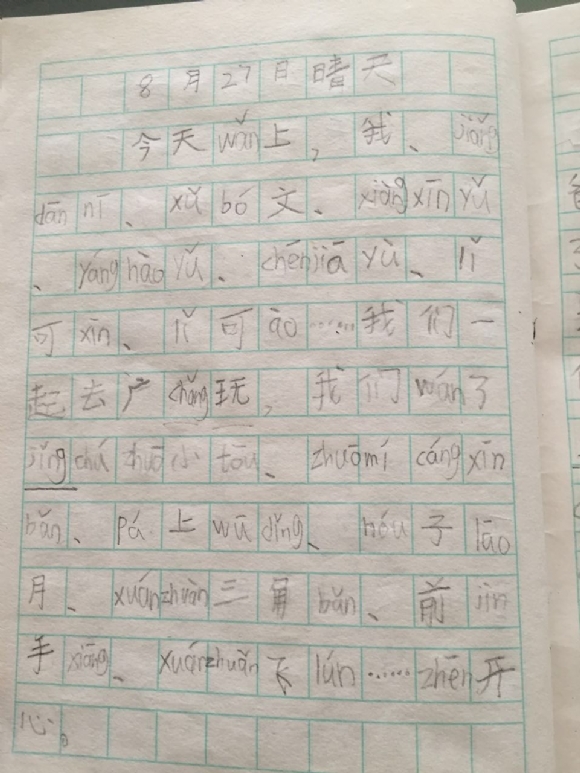 8月27日晴天
今天wǎn上，我、jiǎng
dān nī、xǔ bó文、xiàng xīn yǔ
、yáng hào yǔ、chén jiā yù、lǐ
可xīn、lǐ可ào……我们一
起去广chǎng玩，我们wán了
jǐng chá zhuō小tōu、zhuō mí cáng xīn
bǎn、pá上wū dǐng、hóu子lāo
月、xuán zhuàn三角bǎn、前jìn
手xiāng、xuán zhuǎn飞lún……zhēn开
心。